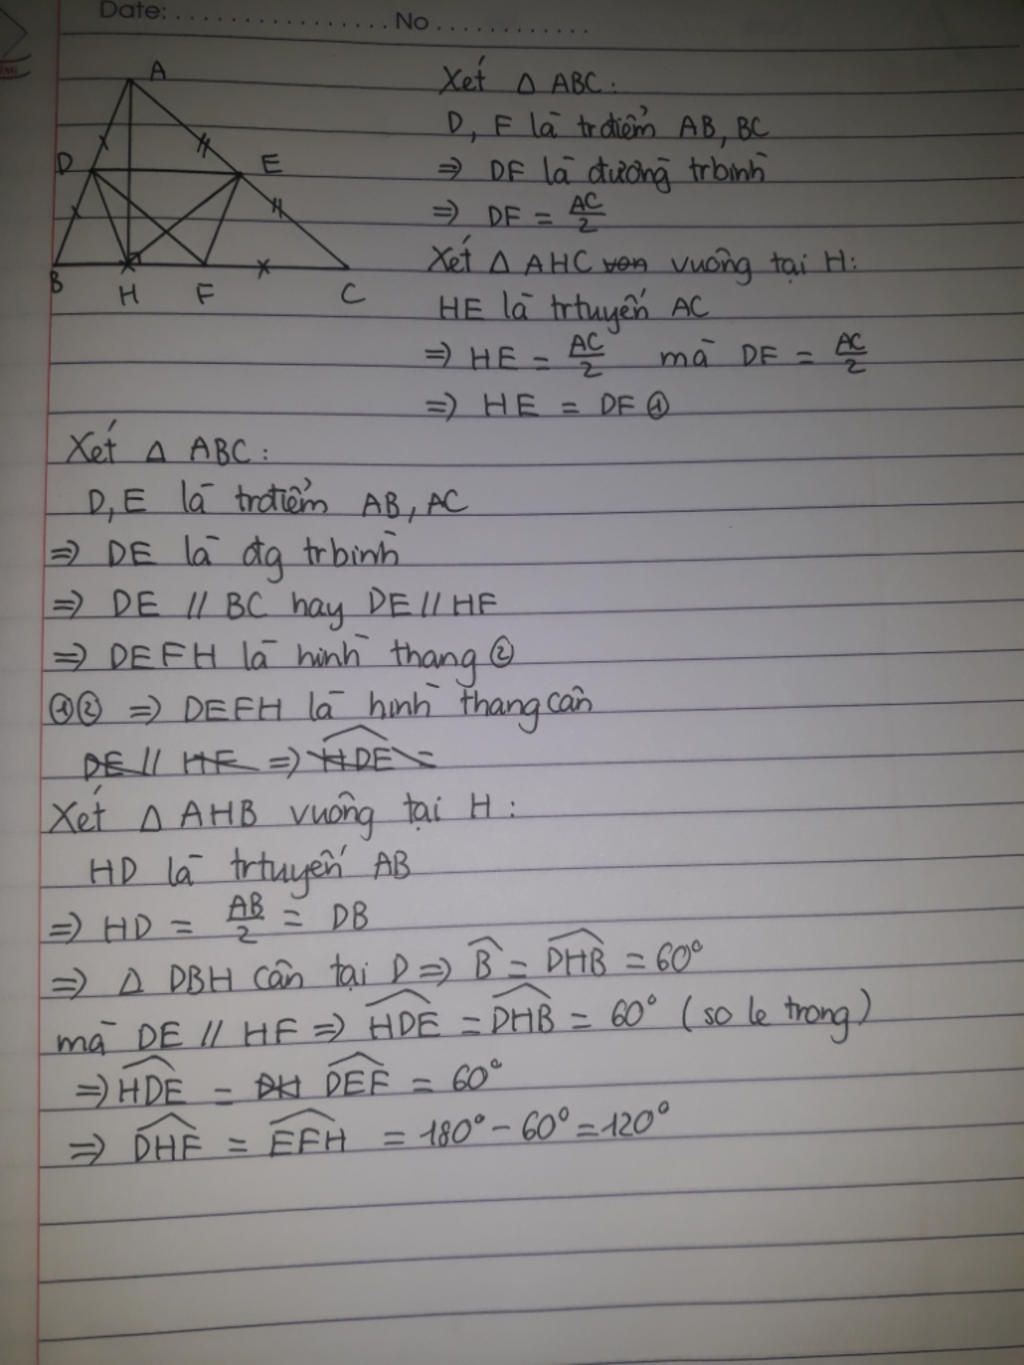 Date: ................ No ............
A
D
E
B
H
F
C
Xét Δ ABC:
D, F là trđiểm AB, BC
=> DF là đường trbình
=> DF = AC/2
Xét Δ AHC von vuông tại H:
HE là trtuyến AC
=> HE = AC/2 mà DF = AC/2
=> HE = DF ①
Xét Δ ABC:
D, E là trđiểm AB, AC
=> DE là đg trbình
=> DE // BC hay DE // HF
=> DEFH là hình thang ②
①② => DEFH là hình thang cân
DE // HF => HDE =
Xét Δ AHB vuông tại H:
HD là trtuyến AB
=> HD = AB/2 = DB
=> Δ DBH cân tại D => B̂ = DHB = 60°
mà DE // HF => HDE = DHB = 60° (so le trong)
=> HDE = DH DEF = 60°
=> DHF = EFH = 180° - 60° = 120°